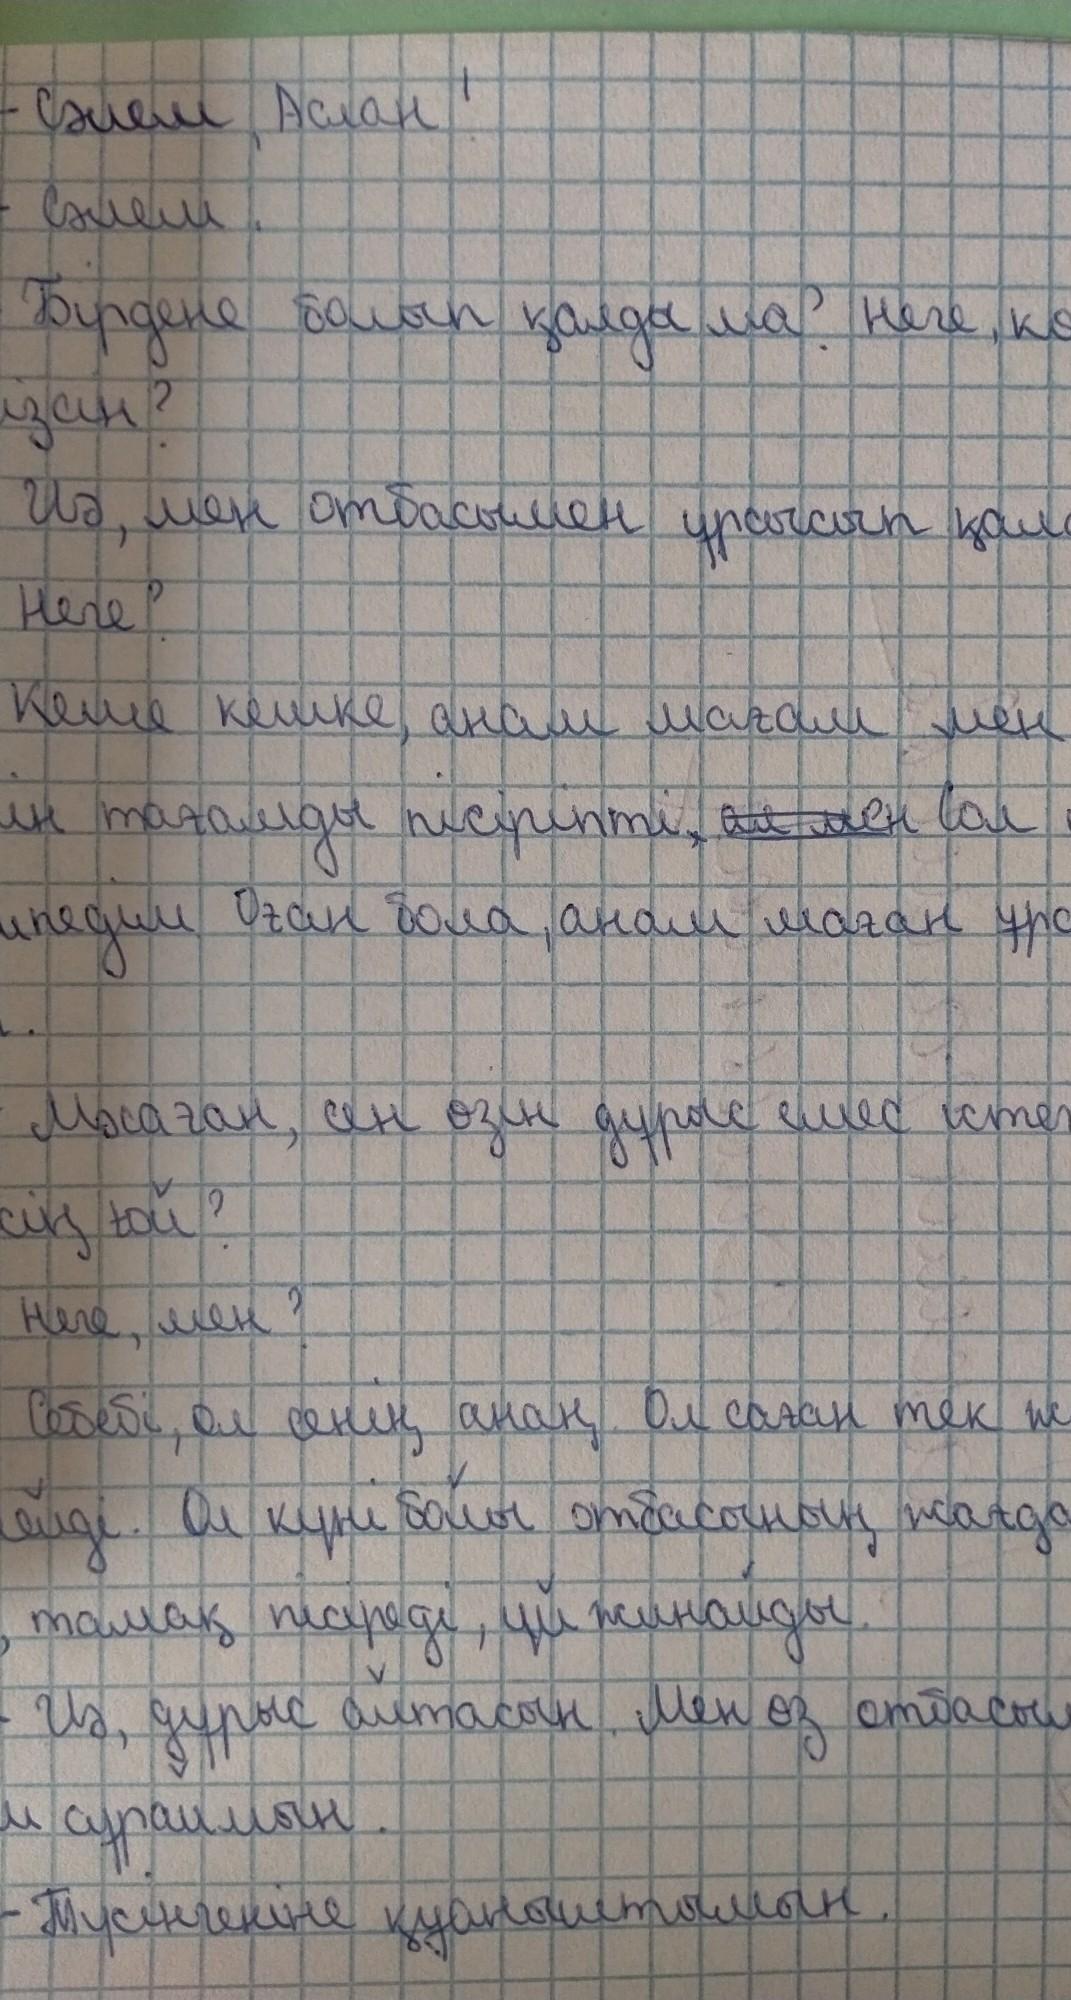 - Сәлем, Аслан!
- Сәлем.
Бірдене болып қалды ма? Неге, кө
ізсің?
Иә, мен отбасымен ұрысып қалд
Неге?
Кеше кешке, анам мағам мен
ін тағамды пісіріпті, ал мен Сол
педім Оған бола, анам маған ұрс
.
- Мәссаған, сен өзін дұрыс емес істеп
сің ғой?
Неге, мен?
Себебі, ол сенің анаң. Ол саған тек ж
ейді. Ол күні бойы отбасының жағда
, тамақ пісіреді, үй жинайды.
- Иә, дұрыс айтасын. Мен өз отбасым
м сұраймын.
- Түсінгеніңе қуаныштымын.